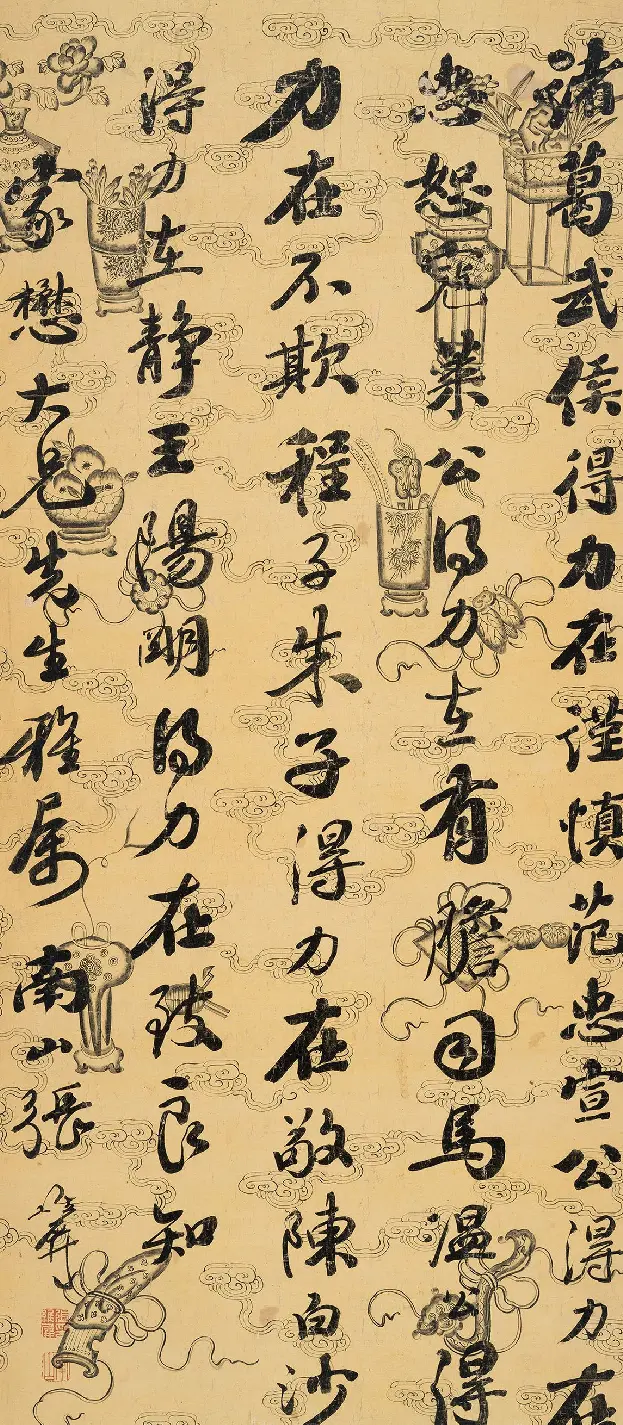 諸葛武侯得力在謹慎范忠宣公得力在
忠恕寇萊公得力在有膽司馬溫公得
力在不欺程子朱子得力在敬陳白沙
得力在静王陽明得力在致良知
家懋大兄先生雅属南山張維屏